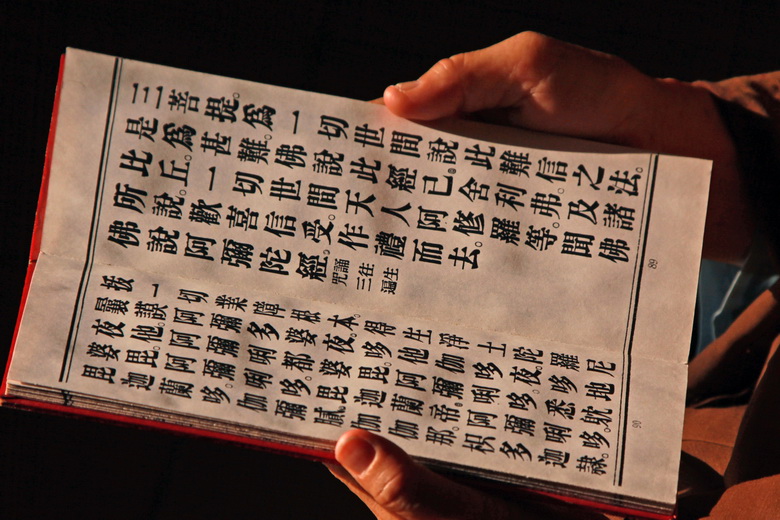 三菩提。為一切世間說此難信之法。
是為甚難。佛說此經已。舍利弗。及諸
比丘。一切世間天人阿修羅等。聞佛
所說。歡喜信受。作禮而去。
佛說阿彌陀經。
誦往生
呪三遍
89
拔一切業障根本得生淨土陀羅尼
曩謨阿彌多婆夜。哆他伽哆夜。哆地
夜他。阿彌唎都婆毘。阿彌唎哆。悉耽
婆毘。阿彌唎哆。毘迦蘭帝。阿彌唎哆。
毘迦蘭哆。伽彌膩。伽伽那。枳多迦隸。
90